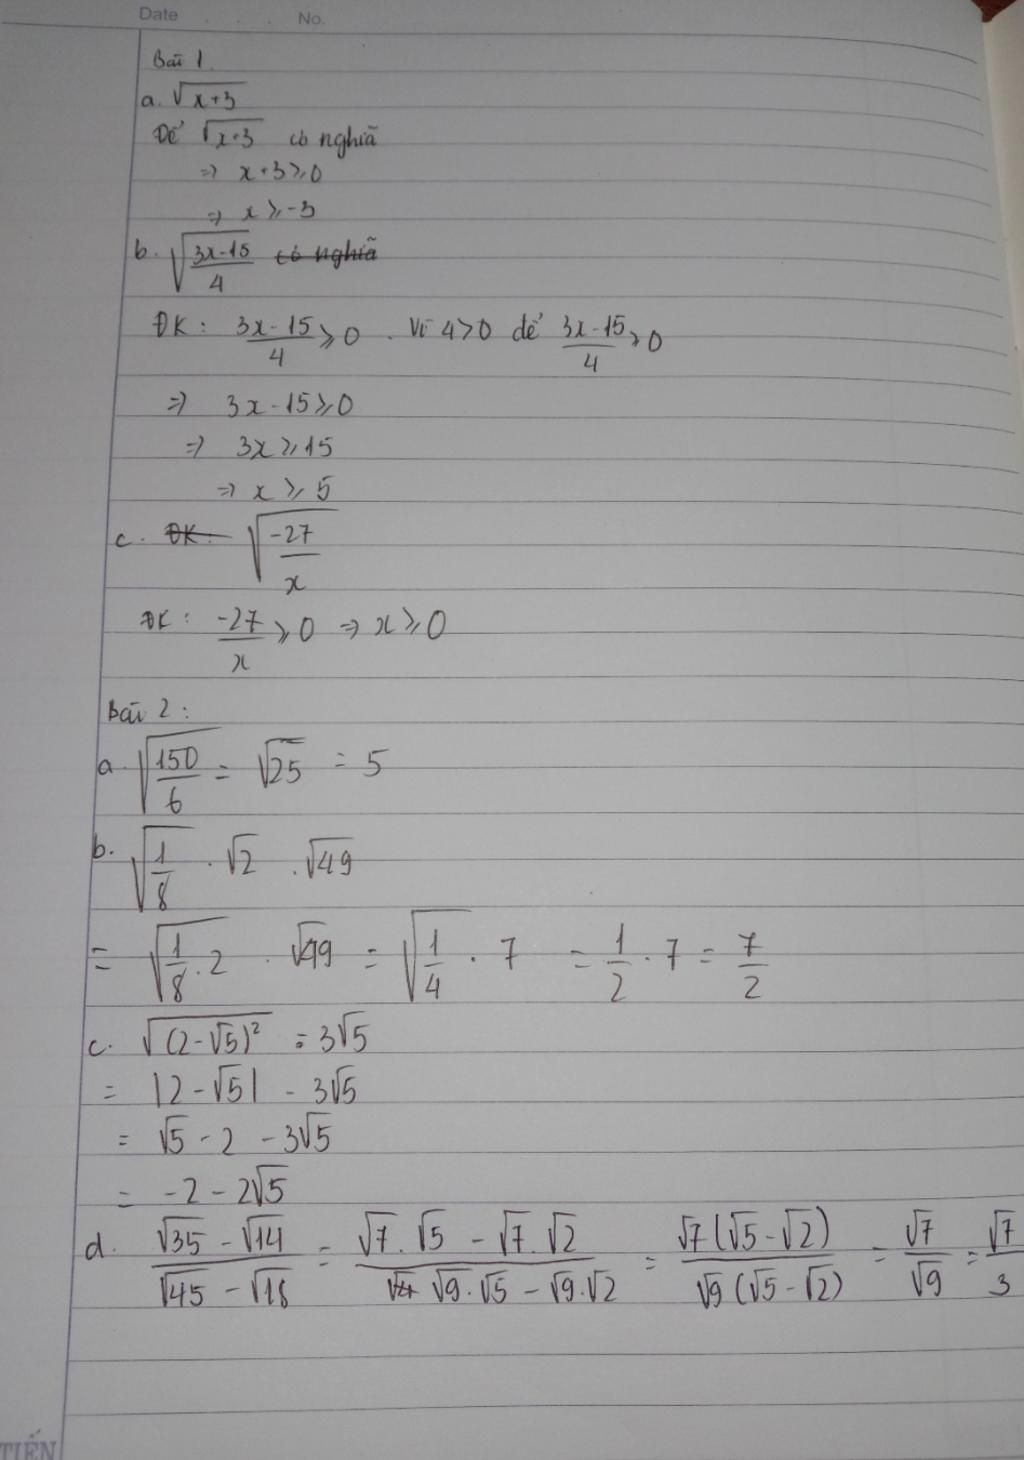 Date . . . No.
Bài 1
a. √(x+3)
Để √(x+3) có nghiã
=> x+3 ⩾ 0
=> x ⩾ -3
b. √((3x-15)/4) có nghiã
ĐK: (3x-15)/4 ⩾ 0 . Vì 4>0 để (3x-15)/4 ⩾ 0
=> 3x-15 ⩾ 0
=> 3x ⩾ 15
=> x ⩾ 5
c. ĐK: √(-27/x)
ĐK: -27/x ⩾ 0 => x ⩾ 0
Bài 2:
a. √(150/6) = √25 = 5
b. √(1/8) . √2 . √49
= √(1/8 . 2) . √49 = √(1/4) . 7 = 1/2 . 7 = 7/2
c. √((2-√5)²) = 3√5
= |2-√5| - 3√5
= √5 - 2 - 3√5
= -2 - 2√5
d. (√35 - √14)/(√45 - √18) = (√7.√5 - √7.√2)/(√9.√5 - √9.√2) = √7(√5-√2)/√9(√5-√2) = √7/√9 = √7/3
TIẾN